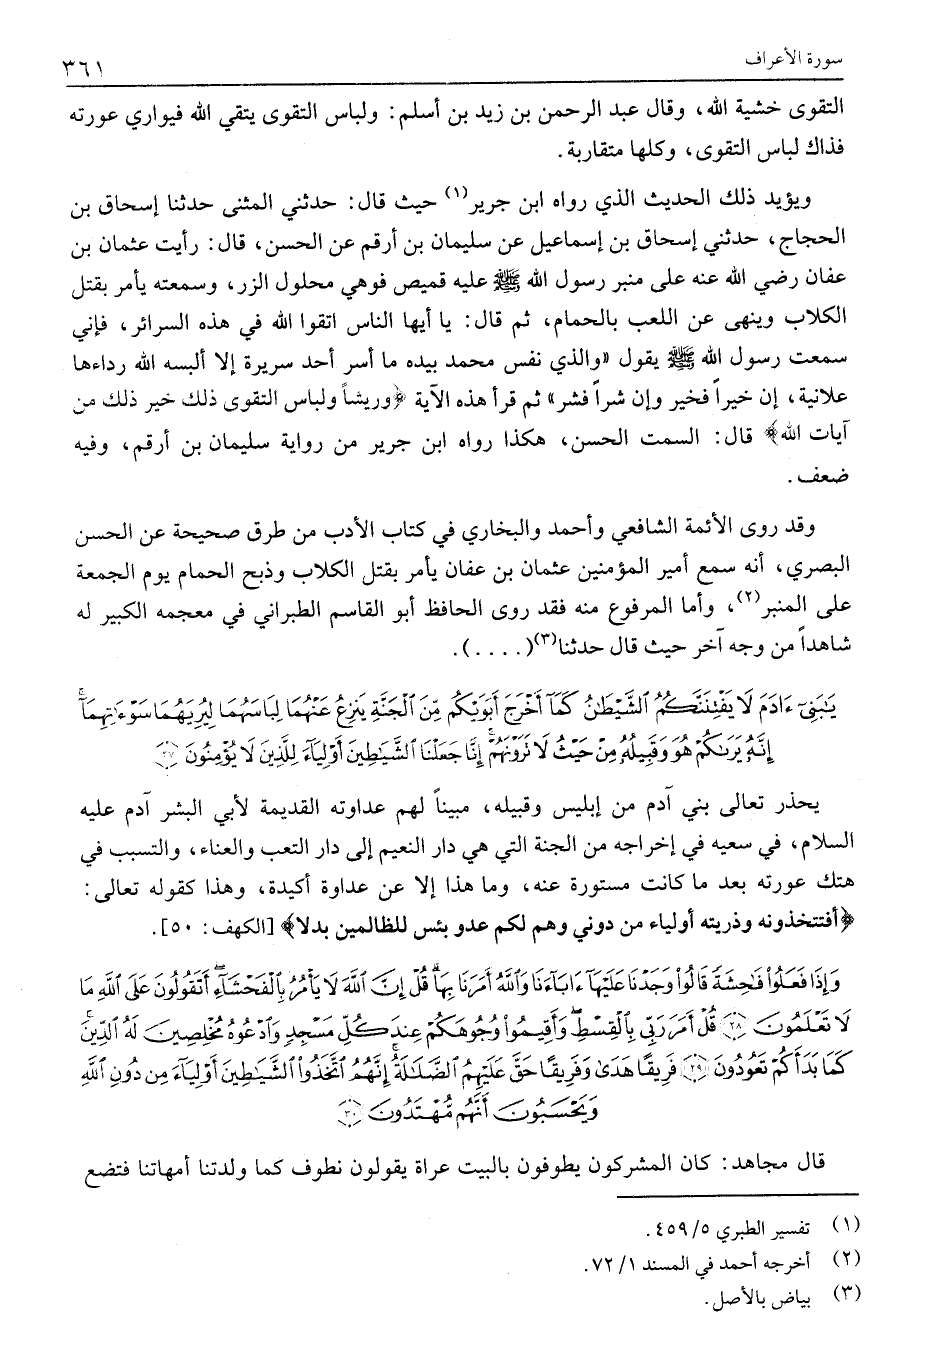 سورة الأعراف
٣٦١
التقوى خشية الله، وقال عبد الرحمن بن زيد بن أسلم: ولباس التقوى يتقي الله فيواري عورته
فذاك لباس التقوى، وكلها متقاربة.
ويؤيد ذلك الحديث الذي رواه ابن جرير(١) حيث قال: حدثني المثنى حدثنا إسحاق بن
الحجاج، حدثني إسحاق بن إسماعيل عن سليمان بن أرقم عن الحسن، قال: رأيت عثمان بن
عفان رضي الله عنه على منبر رسول الله ﷺ عليه قميص فوهي محلول الزر، وسمعته يأمر بقتل
الكلاب وينهى عن اللعب بالحمام، ثم قال: يا أيها الناس اتقوا الله في هذه السرائر، فإني
سمعت رسول الله ﷺ يقول «والذي نفس محمد بيده ما أسر أحد سريرة إلا ألبسه الله رداءها
علانية، إن خيراً فخير وإن شراً فشر» ثم قرأ هذه الآية ﴿وريشاً ولباس التقوى ذلك خير ذلك من
آيات الله﴾ قال: السمت الحسن، هكذا رواه ابن جرير من رواية سليمان بن أرقم، وفيه
ضعف.
وقد روى الأئمة الشافعي وأحمد والبخاري في كتاب الأدب من طرق صحيحة عن الحسن
البصري، أنه سمع أمير المؤمنين عثمان بن عفان يأمر بقتل الكلاب وذبح الحمام يوم الجمعة
على المنبر(٢)، وأما المرفوع منه فقد روى الحافظ أبو القاسم الطبراني في معجمه الكبير له
شاهداً من وجه آخر حيث قال حدثنا(٣)(. . . .).
يَٰبَنِىٓ ءَادَمَ لَا يَفْتِنَنَّكُمُ ٱلشَّيْطَٰنُ كَمَآ أَخْرَجَ أَبَوَيْكُم مِّنَ ٱلْجَنَّةِ يَنزِعُ عَنْهُمَا لِبَاسَهُمَا لِيُرِيَهُمَا سَوْءَٰتِهِمَآۚ
إِنَّهُۥ يَرَىٰكُمْ هُوَ وَقَبِيلُهُۥ مِنْ حَيْثُ لَا تَرَوْنَهُمْۗ إِنَّا جَعَلْنَا ٱلشَّيَٰطِينَ أَوْلِيَآءَ لِلَّذِينَ لَا يُؤْمِنُونَ ٢٧
يحذر تعالى بني آدم من إبليس وقبيله، مبيناً لهم عداوته القديمة لأبي البشر آدم عليه
السلام، في سعيه في إخراجه من الجنة التي هي دار النعيم إلى دار التعب والعناء، والتسبب في
هتك عورته بعد ما كانت مستورة عنه، وما هذا إلا عن عداوة أكيدة، وهذا كقوله تعالى:
﴿أفتتخذونه وذريته أولياء من دوني وهم لكم عدو بئس للظالمين بدلا﴾ [الكهف: ٥٠].
وَإِذَا فَعَلُوا۟ فَٰحِشَةً قَالُوا۟ وَجَدْنَا عَلَيْهَآ ءَابَآءَنَا وَٱللَّهُ أَمَرَنَا بِهَاۗ قُلْ إِنَّ ٱللَّهَ لَا يَأْمُرُ بِٱلْفَحْشَآءِۖ أَتَقُولُونَ عَلَى ٱللَّهِ مَا
لَا تَعْلَمُونَ ٢٨ قُلْ أَمَرَ رَبِّى بِٱلْقِسْطِۖ وَأَقِيمُوا۟ وُجُوهَكُمْ عِندَ كُلِّ مَسْجِدٍ وَٱدْعُوهُ مُخْلِصِينَ لَهُ ٱلدِّينَۚ
كَمَا بَدَأَكُمْ تَعُودُونَ ٢٩ فَرِيقًا هَدَىٰ وَفَرِيقًا حَقَّ عَلَيْهِمُ ٱلضَّلَٰلَةُۗ إِنَّهُمُ ٱتَّخَذُوا۟ ٱلشَّيَٰطِينَ أَوْلِيَآءَ مِن دُونِ ٱللَّهِ
وَيَحْسَبُونَ أَنَّهُم مُّهْتَدُونَ ٣٠
قال مجاهد: كان المشركون يطوفون بالبيت عراة يقولون نطوف كما ولدتنا أمهاتنا فتضع
(١) تفسير الطبري ٤٥٩/٥.
(٢) أخرجه أحمد في المسند ٧٢/١.
(٣) بياض بالأصل.